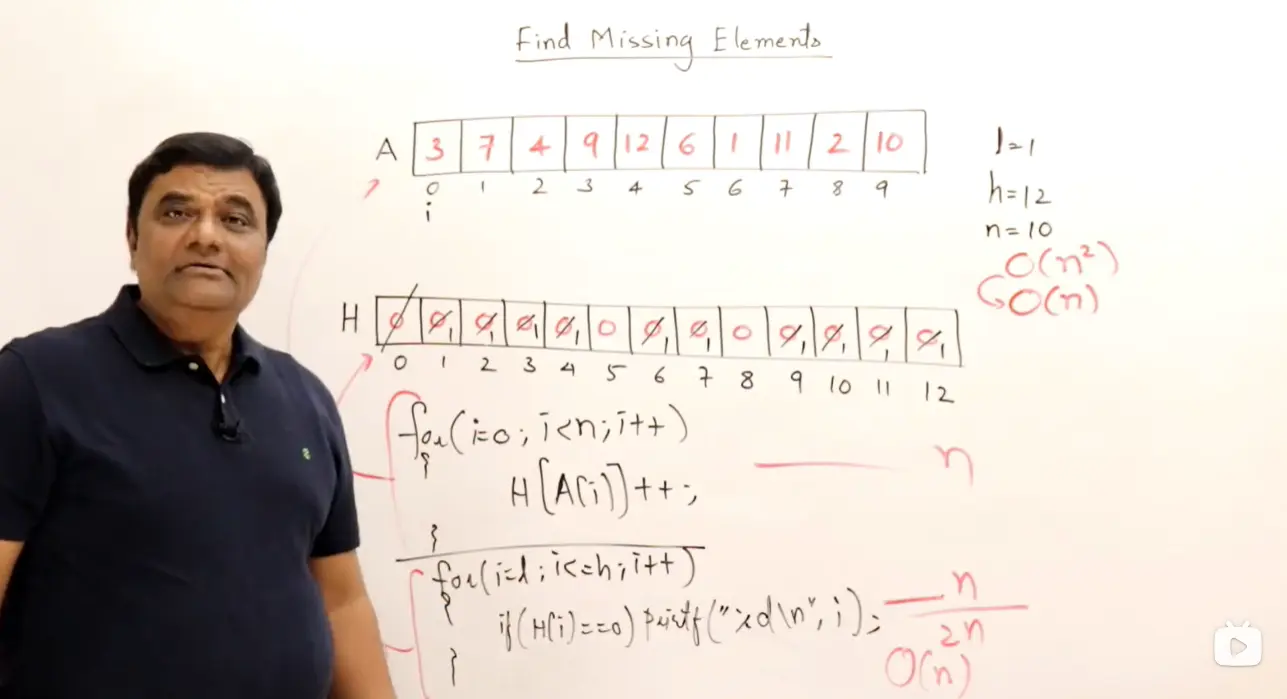 Find Missing Elements
A 3 7 4 9 12 6 1 11 2 10
0 1 2 3 4 5 6 7 8 9
i
l=1
h=12
n=10
O(n²)
O(n)
H 0 0 1 0 1 0 1 0 1 0 0 1 0 1 0 0 1 0 1 0 1 0 1
0 1 2 3 4 5 6 7 8 9 10 11 12
for(i=0; i<n; i++)
{
H[A[i]]++;
}
n
for(i=l; i<=h; i++)
{
if(H[i]==0) printf("%d\n", i);
}
n
2n
O(n)